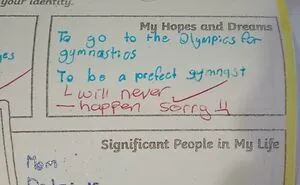 your identity.
My Hopes and Dreams
To go to the Olympics for
gymnastics
To be a prefect gymnast
will never
happen sorry !!
Significant People in My Life
Mom